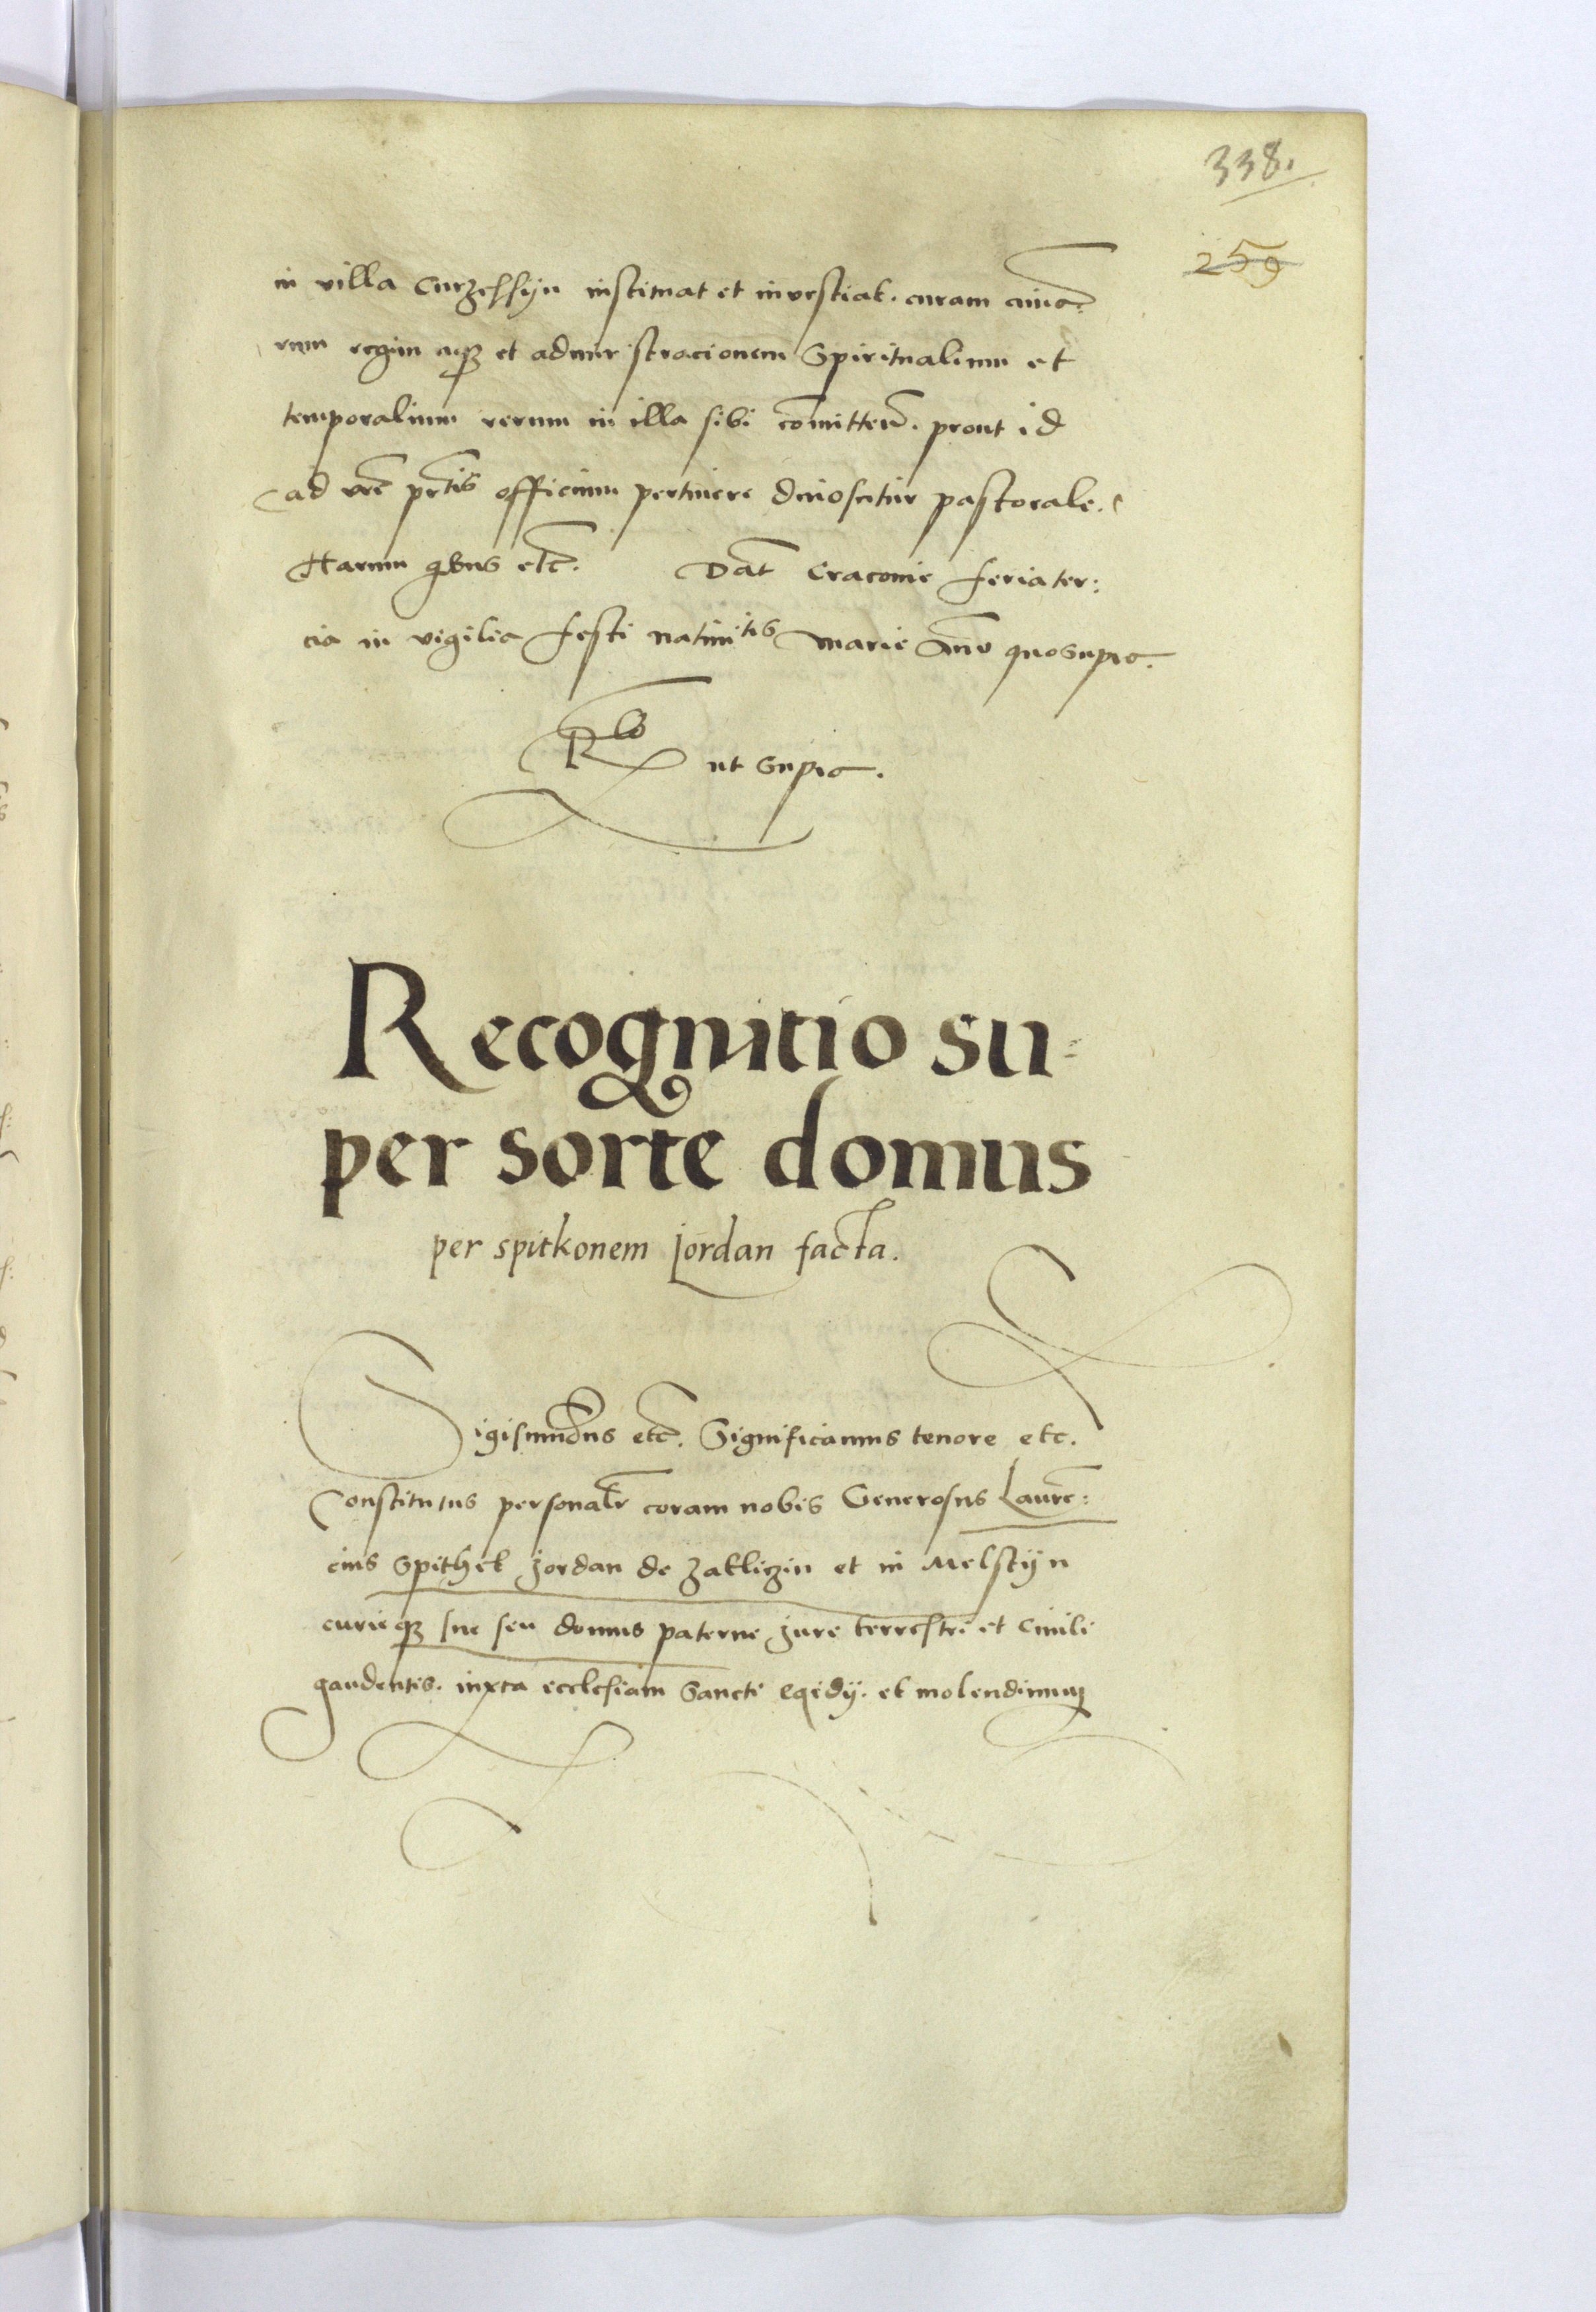 338.
259
in villa Curzelssÿn instituat et investiat. curam anima:
rum regim aqz et administracionem Spiritualium et
temporalium rerum in illa sibi comitten. prout id
ad vre prtis officium pertinere dinoscitur pastorale.
Harum qbus etc. Dat Cracovie feria ter:
cia in vigilia festi nativitis Marie Anno quo supra.
Rlo ut supra.
Recognitio su=
per sorte domus
per spitkonem Jordan facta.
Sigismundus etc. Significamus tenore etc.
Constitutus personalr coram nobis Generosus Lauren:
cius Spithek Jordan de Zakliczin et in Melstÿn
curieqz sue seu domus paterne jure terrestri et civili
gaudentis. iuxta ecclesiam Sancti Egidÿ. et molendinum